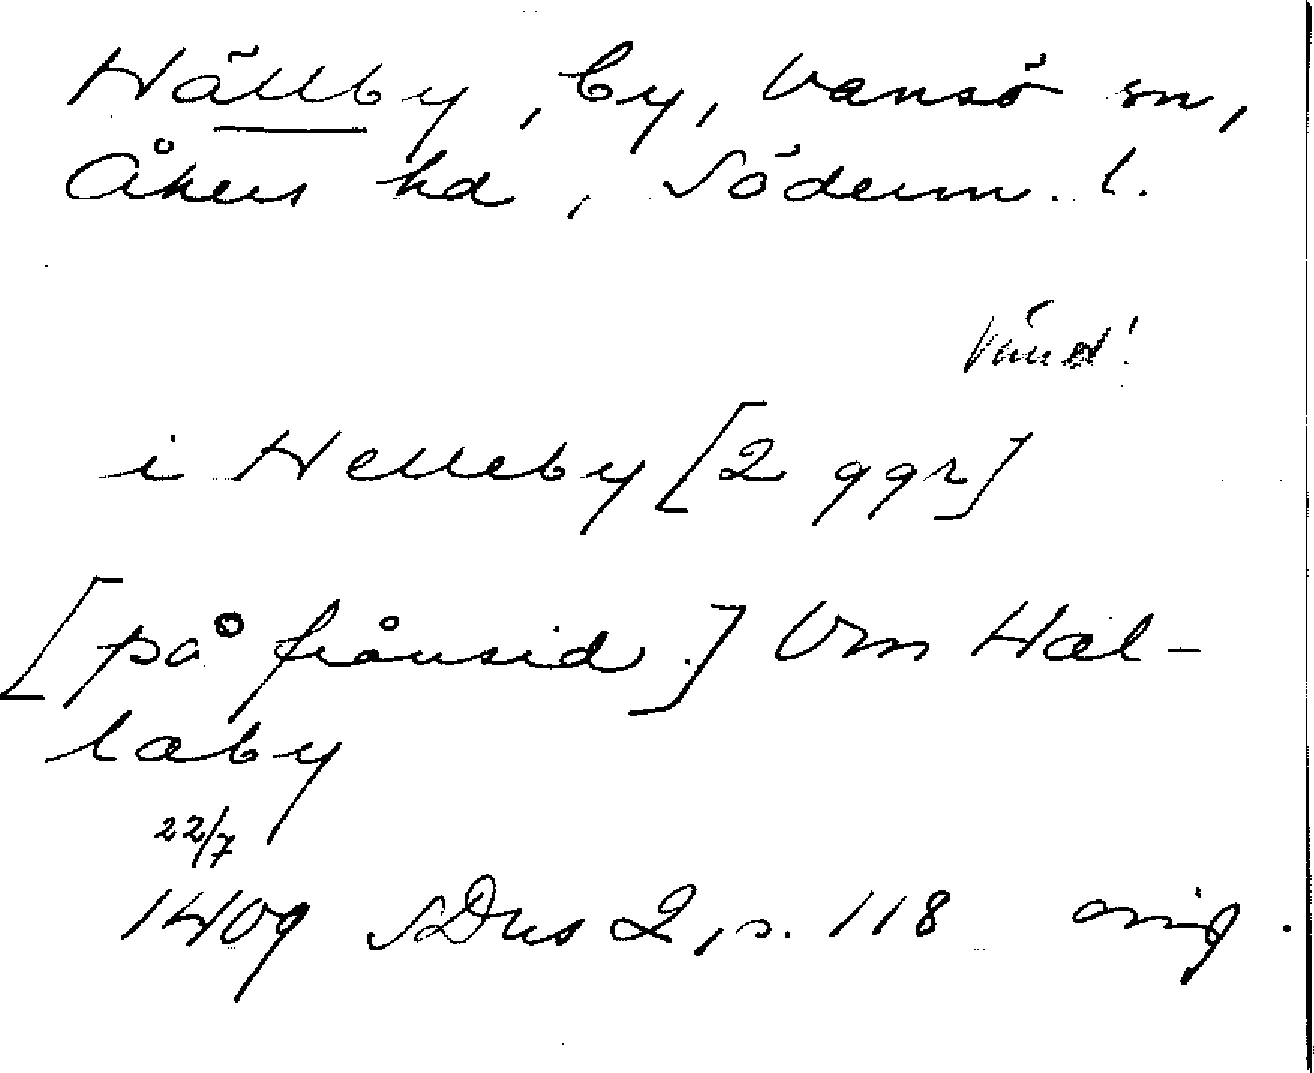 Hällby, by, Vansö sn,
Åkers hd, Söderm. l.
Vänd!
i Helleby [2 ggr]
[på frånsid.] Vm Hæl-
laby
22/7
1409 SDns 2, s. 118 orig.